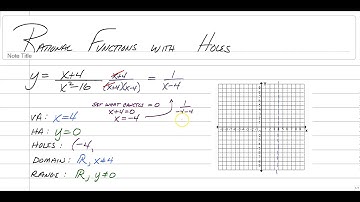 RATIONAL FUNCTIONS WITH HOLES
Note Title
y = x+4 / x²-16 = x+4 / (x+4)(x-4) = 1 / x-4
SET WHAT CANCELS = 0
x+4=0
x=-4
1 / -4-4
VA: x=4
HA: y=0
HOLES: (-4,
DOMAIN: ℝ, x≠4
RANGE: ℝ, y≠0